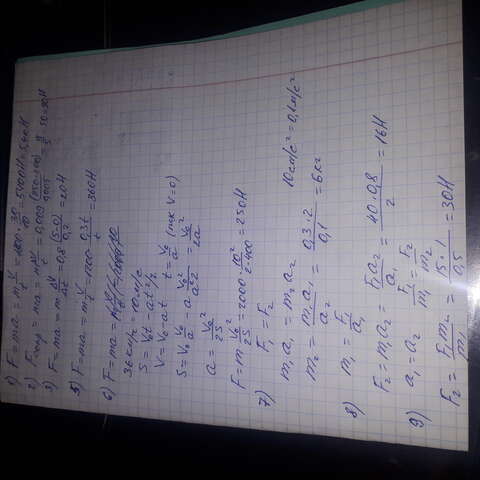 1) F = ma = m V/t = 1800 · 30/10 = 5400 H = 5,4 кН
2) Fсопр = ma = m ΔV/Δt = 0,009
3) F = ma = m ΔV/Δt = 0,8 (5-0)/0,2 = 20 H
5) F = ma = m V/t = 1200 · 0,3t/t = 360 H
6) F = ma =
36 км/ч = 10 м/с
S = V₀t - at²/2
V = V₀ - at t = V₀/a (т.к V = 0)
S = V₀ V₀/a - a V₀²/a²2 = V₀²/2a
a = V₀²/2S
F = m V₀²/2S = 2000 · 10²/2·400 = 250 H
7) F₁ = F₂
m₁a₁ = m₂a₂ 10 см/с² = 0,1 м/с²
m₂ = m₁a₁/a₂ = 0,3·2/0,1 = 6 кг
8) m₁ = F₁/a₁
F₂ = m₁a₂ = F₁a₂/a₁ = 40·0,8/2 = 16 H
9) a₁ = a₂ F₁/m₁ = F₂/m₂
F₂ = F₁m₂/m₁ = 15·1/0,5 = 30 H